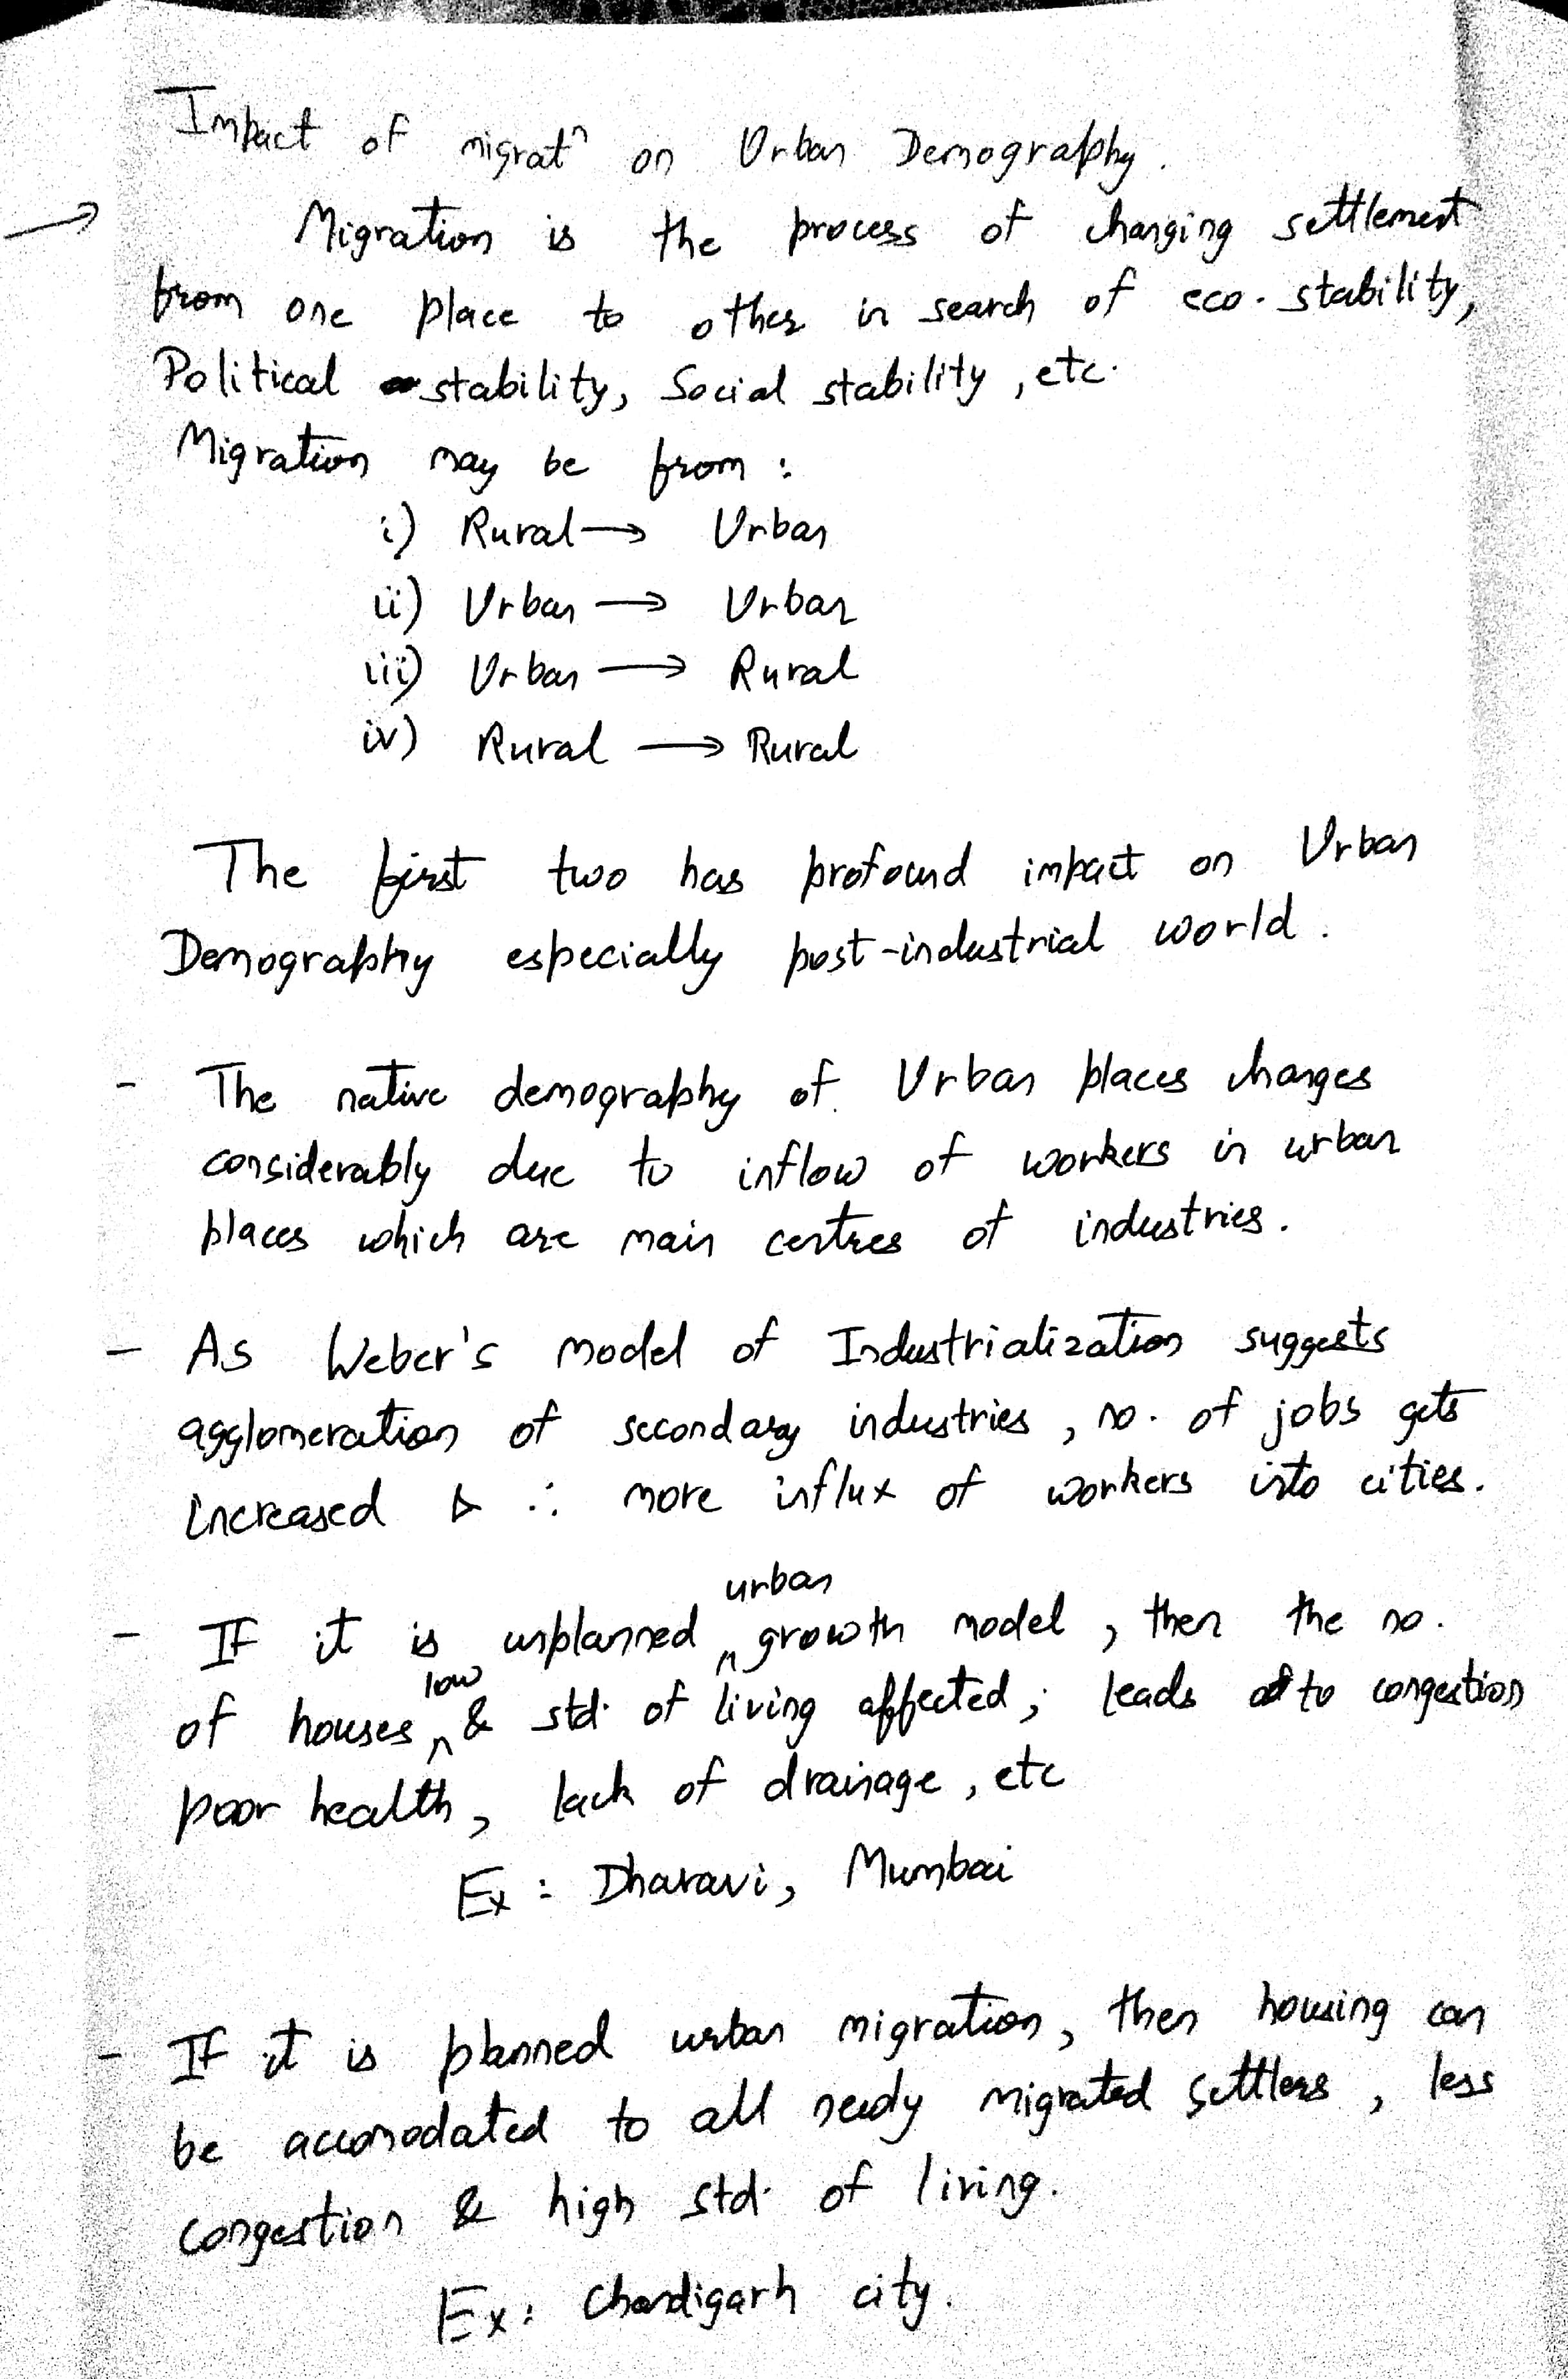 Impact of migratⁿ on Urban Demography.
→ Migration is the process of changing settlement
from one place to other in search of eco. stability,
Political stability, Social stability, etc.
Migration may be from :
i) Rural → Urban
ii) Urban → Urban
iii) Urban → Rural
iv) Rural → Rural
The first two has profound impact on Urban
Demography especially post-industrial world.
- The native demography of Urban places changes
considerably due to inflow of workers in urban
places which are main centres of industries.
- As Weber's model of Industrialization suggests
agglomeration of secondary industries, no. of jobs gets
increased & ∴ more influx of workers into cities.
- If it is unplanned urban growth model, then the no.
of houses low & std. of living affected; leads to congestion
poor health, lack of drainage, etc
Ex : Dharavi, Mumbai
- If it is planned urban migration, then housing can
be accomodated to all needy migrated settlers, less
congestion & high std. of living.
Ex : Chandigarh city.